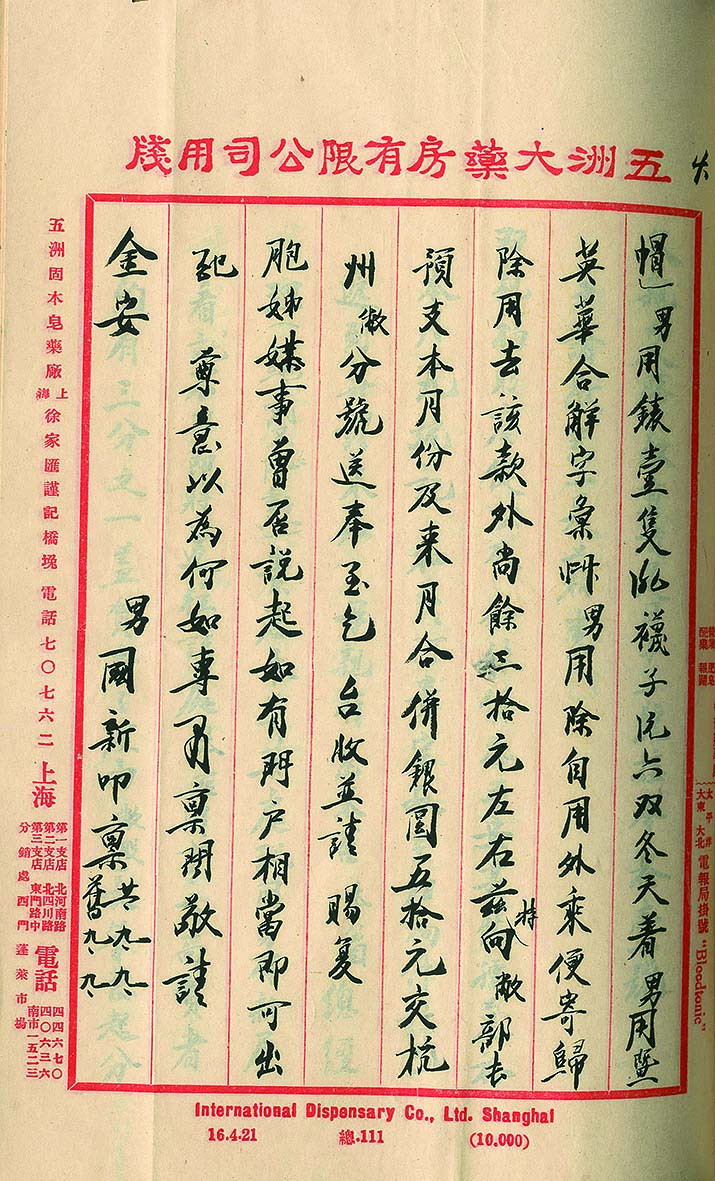 五洲大藥房有限公司用牋
帽」男用錶壹隻 襪子 六双冬天着男用
英華合解字彙 男用除自用外乘便寄歸
除用去該款外尚餘三拾元左右茲特向敝部去
預支本月份及来月合併銀圓五拾元交杭
州敝分號送奉至乞 台收並請 賜复
胞姊媒事曾否說起如有門戶相當即可出
配 尊意以為何如專肅稟聞敬請
金安
男國新叩稟
舊 九、九
五洲固本皂藥廠
上海
徐家匯謹記橋堍
電話七〇七六二
上海
第一支店 北河南路
第二支店 北四川路
第三支店 東門路中
分銷處 西門蓬萊市場
電話
四四六七〇
四〇六三六
南市一五二三
太平洋
大東 大北
電報局掛號
"Bloodtonic"
International Dispensary Co., Ltd. Shanghai
16.4.21 總.111 (10.000)